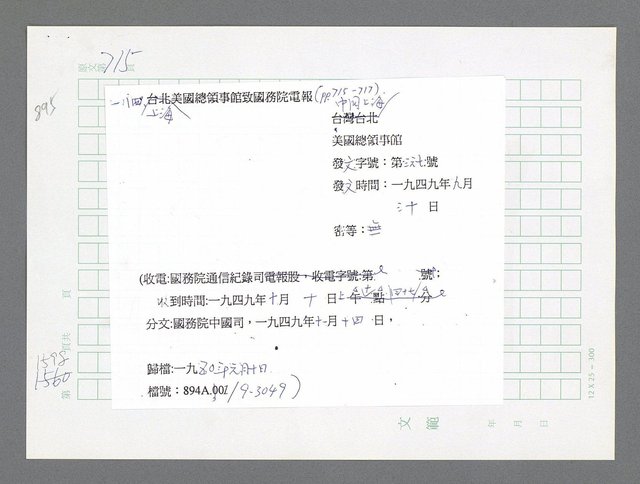 原文第715頁
895
一八四、台北美國總領事館致國務院電報(pp.715-717)
上海
中國上海
台灣台北
美國總領事館
發文字號：第號
發文時間：一九四九年九月
三十 日
密等：無
(收電:國務院通信紀錄司電報股，收電字號:第 號：
收到時間:一九四九年十月 十 日上午 點 分
分文:國務院中國司，一九四九年十月十四日，
歸檔:一九五〇年元月十日
檔號：894A.00/9-3049)
頁
頁共
1592
1560
第
文 範
年 月 日
12 X 25 - 300